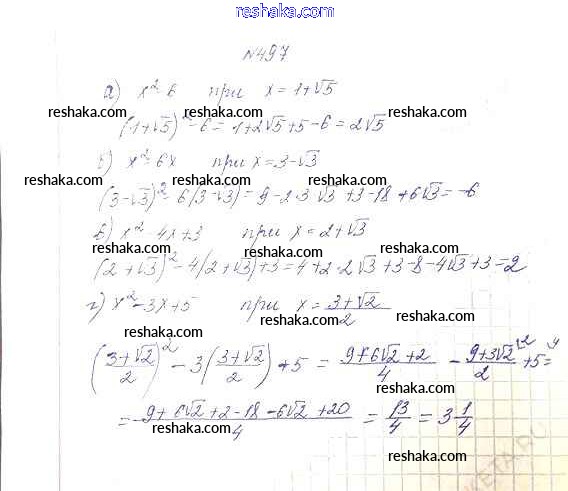 reshaka.com
№497
а) x² - 6 при x = 1+√5
reshaka.com reshaka.com reshaka.com
(1+√5)² - 6 = 1+2√5+5-6 = 2√5
б) x² - 6x при x = 3-√3
reshaka.com reshaka.com reshaka.com
(3-√3)² - 6(3-√3) = 9-2·3√3+3-18+6√3 = -6
в) x² - 4x+3 при x = 2+√3
reshaka.com reshaka.com reshaka.com
(2+√3)² - 4(2+√3)+3 = 4+2·2√3+3-8-4√3+3 = 2
г) x² - 3x+5 при x = (3+√2)/2
reshaka.com reshaka.com
((3+√2)/2)² - 3((3+√2)/2) + 5 = (9+6√2+2)/4 - (9+3√2)/2 + 5 =
reshaka.com reshaka.com reshaka.com
= (9+6√2+2-18-6√2+20)/4 = 13/4 = 3 1/4
reshaka.com reshaka.com